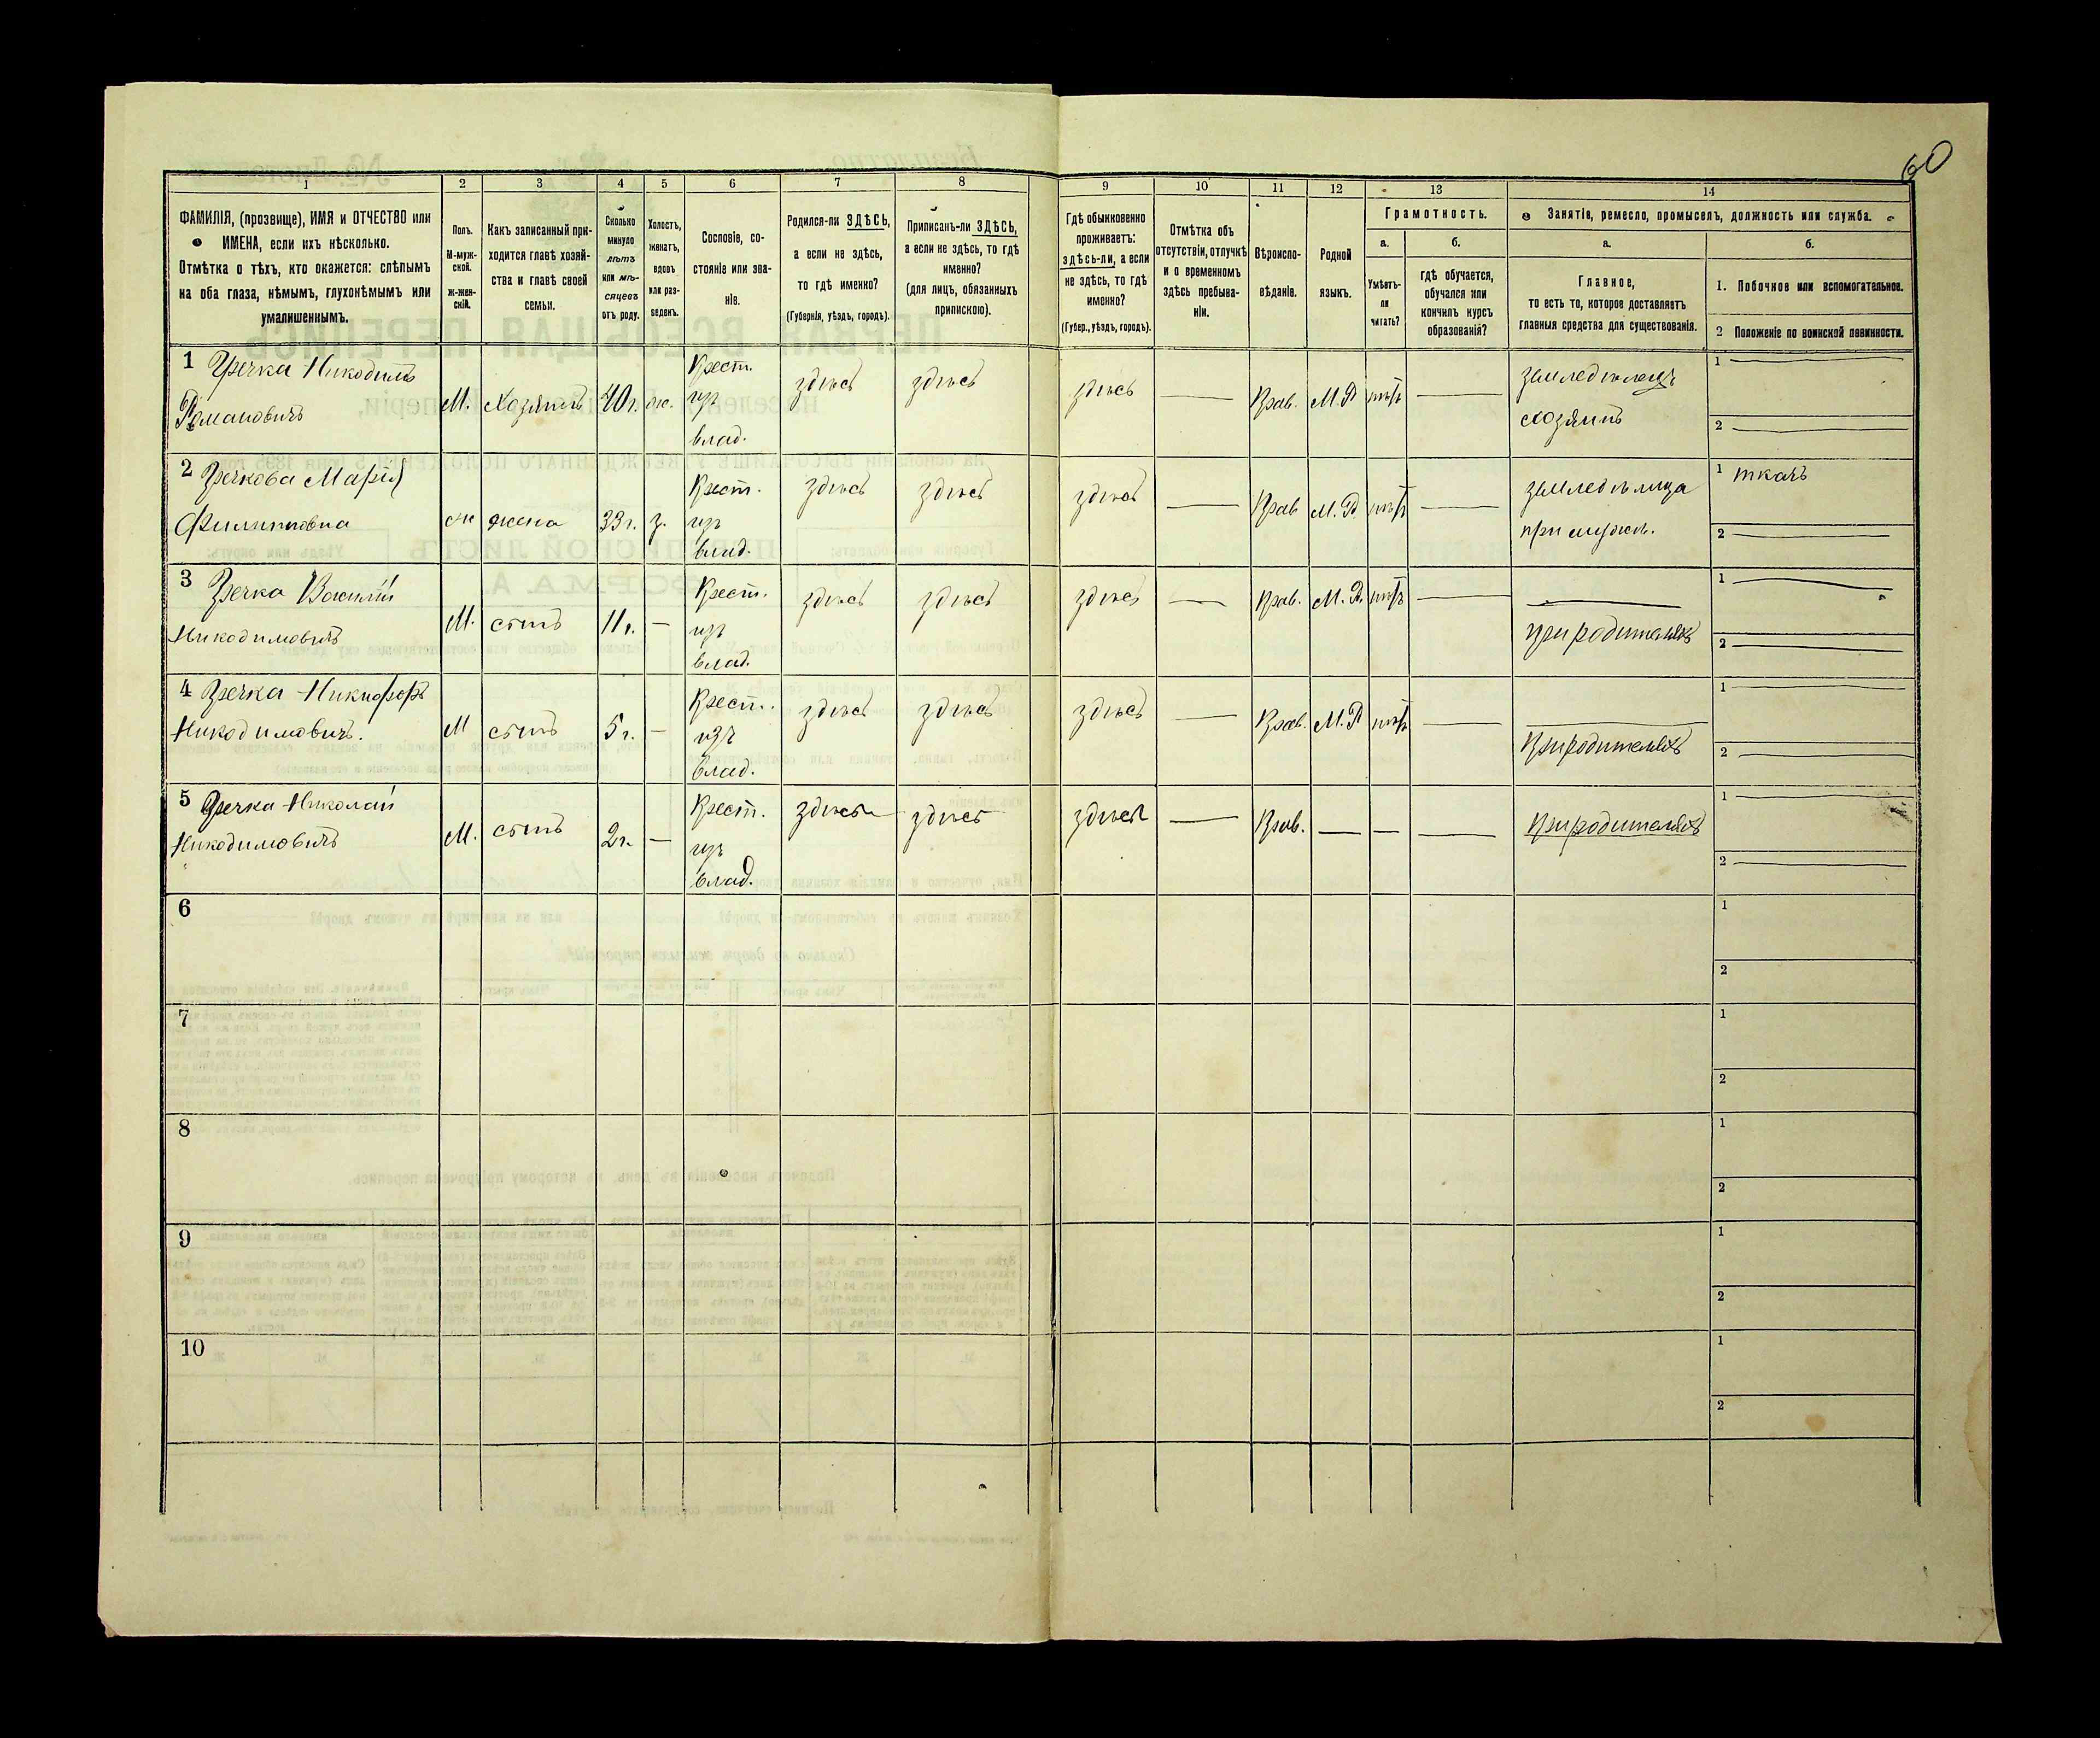 60
1 2 3 4 5 6 7 8 9 10 11 12 13 14
ФАМИЛІЯ, (прозвище), ИМЯ и ОТЧЕСТВО или
ИМЕНА, если ихъ нѣсколько.
Отмѣтка о тѣхъ, кто окажется: слѣпымъ
на оба глаза, нѣмымъ, глухонѣмымъ или
умалишеннымъ.
Полъ.
М-муж-
ской.
ж-жен-
скій.
Какъ записанный при-
ходится главѣ хозяй-
ства и главѣ своей
семьи.
Сколько
минуло
лѣтъ
или мѣ-
сяцевъ
отъ роду.
Холостъ,
женатъ,
вдовъ
или раз-
веденъ.
Сословіе, со-
стояніе или зва-
ніе.
Родился-ли ЗДѢСЬ,
а если не здѣсь,
то гдѣ именно?
(Губернія, уѣздъ, городъ).
Приписанъ-ли ЗДѢСЬ,
а если не здѣсь, то гдѣ
именно?
(для лицъ, обязанныхъ
припискою).
Гдѣ обыкновенно
проживаетъ:
здѣсь-ли, а если
не здѣсь, то гдѣ
именно?
(Губер., уѣздъ, городъ).
Отмѣтка объ
отсутствіи, отлучкѣ
и о временномъ
здѣсь пребыва-
ніи.
Вѣроиспо-
вѣданіе.
Родной
языкъ.
Грамотность.
а.
Умѣетъ-
ли
читать?
б.
гдѣ обучается,
обучался или
кончилъ курсъ
образованія?
Занятіе, ремесло, промыселъ, должность или служба.
а.
Главное,
то есть то, которое доставляетъ
главныя средства для существованія.
б.
1. Побочное или вспомогательное.
2 Положеніе по воинской повинности.
1 Гречка Никодимъ
Романовичъ
М. Хозяинъ 40 г. ж.
Крест.
изъ
влад.
здѣсь здѣсь здѣсь — Прав. М.Р нѣтъ —
земледѣлецъ
хозяинъ
1 —
2 —
2 Гречкова Марія
Филипповна
ж жена 33 г. з.
Крест.
изъ
влад.
здѣсь здѣсь здѣсь — Прав М.Р. нѣтъ —
земледѣлица
при мужѣ.
1 ткачъ
2 —
3 Гречка Василій
Никодимовичъ
М. сынъ 11 г. —
Крест.
изъ
влад.
здѣсь здѣсь здѣсь — Прав. М.Р. нѣтъ —
—
при родителяхъ
1 —
2 —
4 Гречка Никифоръ
Никодимовичъ.
М сынъ 5 г. —
Крест.
изъ
влад.
здѣсь здѣсь здѣсь — Прав. М.Р нѣтъ —
—
при родителяхъ
1 —
2 —
5 Гречка Николай
Никодимовичъ
М. сынъ 2 г. —
Крест.
изъ
влад.
здѣсь здѣсь здѣсь — Прав. — — —
при родителяхъ
1 —
2 —
6
1
2
7
1
2
8
1
2
9
1
2
10
1
2